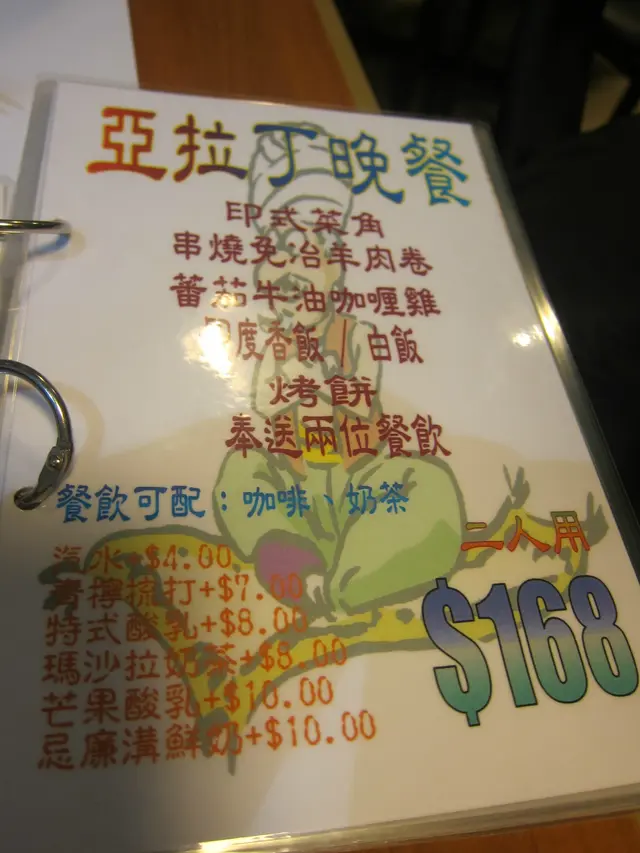 亞拉丁晚餐
印式菜角
串燒免治羊肉卷
蕃茄牛油咖喱雞
印度香飯 / 白飯
烤餅
奉送兩位餐飲
餐飲可配：咖啡、奶茶
汽水+$4.00
青檸梳打+$7.00
特式酸乳+$8.00
瑪沙拉奶茶+$8.00
芒果酸乳+$10.00
忌廉溝鮮奶+$10.00
二人用
$168